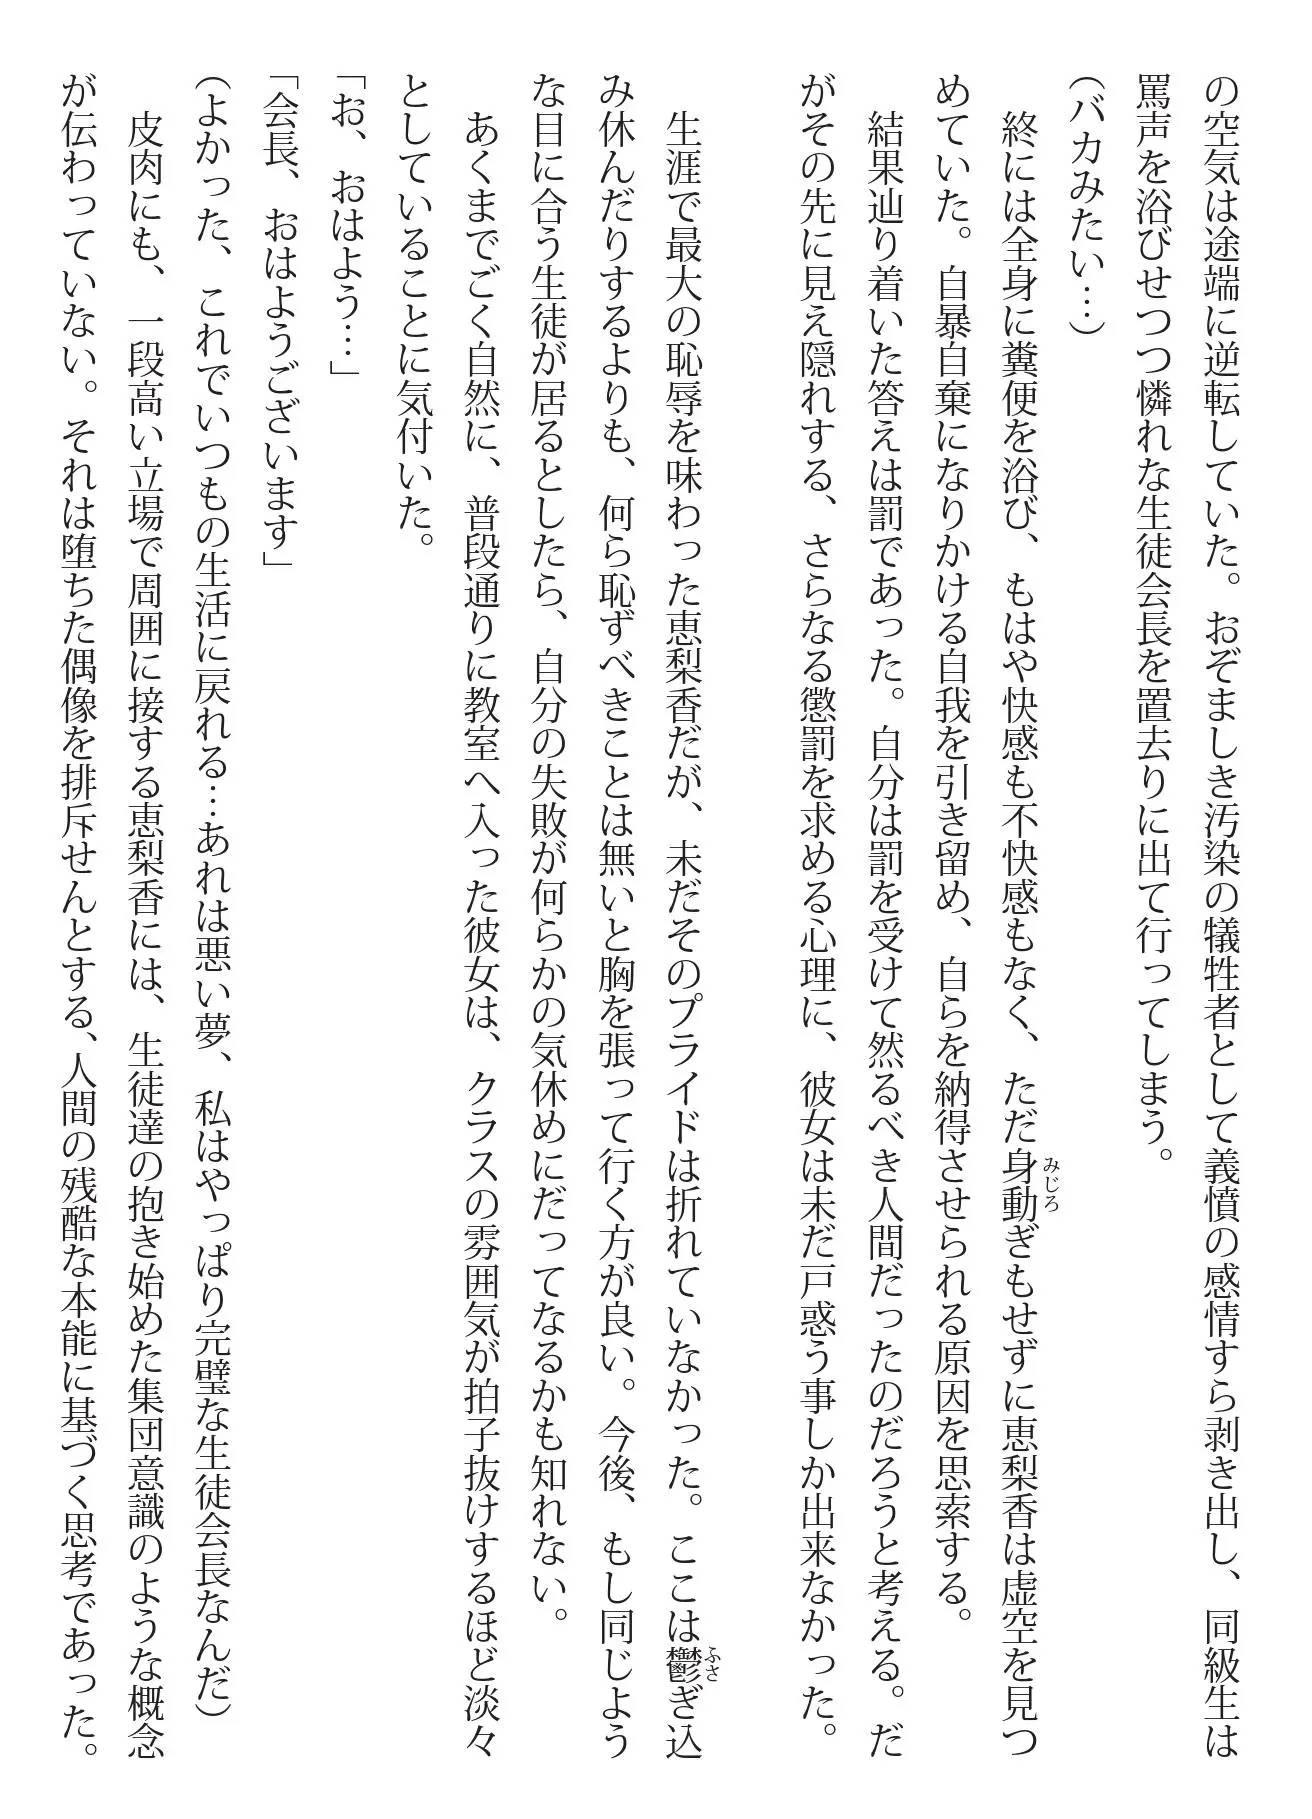 の空気は途端に逆転していた。おぞましき汚染の犠牲者として義憤の感情すら剥き出し、同級生は
罵声を浴びせつつ憐れな生徒会長を置去りに出て行ってしまう。
（バカみたい…）
　終には全身に糞便を浴び、もはや快感も不快感もなく、ただ身動ぎもせずに恵梨香は虚空を見つ
みじろ
めていた。自暴自棄になりかける自我を引き留め、自らを納得させられる原因を思索する。
　結果辿り着いた答えは罰であった。自分は罰を受けて然るべき人間だったのだろうと考える。だ
がその先に見え隠れする、さらなる懲罰を求める心理に、彼女は未だ戸惑う事しか出来なかった。
　生涯で最大の恥辱を味わった恵梨香だが、未だそのプライドは折れていなかった。ここは鬱ぎ込
ふさ
み休んだりするよりも、何ら恥ずべきことは無いと胸を張って行く方が良い。今後、もし同じよう
な目に合う生徒が居るとしたら、自分の失敗が何らかの気休めにだってなるかも知れない。
　あくまでごく自然に、普段通りに教室へ入った彼女は、クラスの雰囲気が拍子抜けするほど淡々
としていることに気付いた。
「お、おはよう…」
「会長、おはようございます」
（よかった、これでいつもの生活に戻れる…あれは悪い夢、私はやっぱり完璧な生徒会長なんだ）
　皮肉にも、一段高い立場で周囲に接する恵梨香には、生徒達の抱き始めた集団意識のような概念
が伝わっていない。それは堕ちた偶像を排斥せんとする、人間の残酷な本能に基づく思考であった。